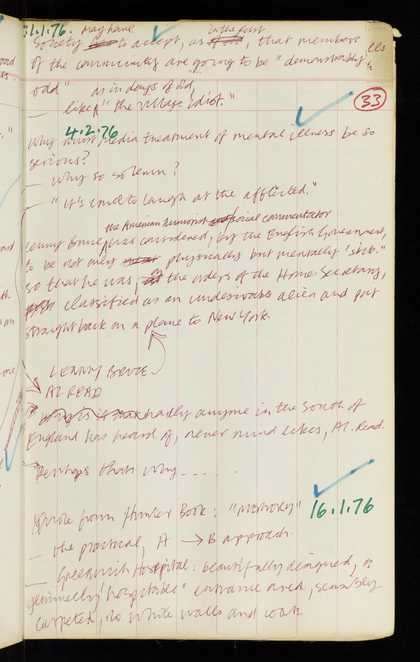 1.1.76. may have in the past
Society to accept, as , that members
of the community are going to be "demonstrably
odd" as in days of old,
— like "the village idiot."
33
4.2.76
Why must media treatment of mental illness be so
serious?
— Why so solemn?
— "It's cruel to laugh at the afflicted."
the American humorist social commentator
Lenny Bruce was considered, by the English Government,
to be not only physically but mentally 'sick.'
so that he was, the orders of the Home Secretary,
classified as an undesirable alien and put
straight back on a plane to New York.
LENNY BRUCE
AL READ
Why is it hardly anyone in the South of
England has heard of, never mind likes, Al Read.
Perhaps that's why - - - - .
Quote from Hunter Book: "Memory" 16.1.76
— The practical, A → B approach
— Greenwich Hospital: beautifully designed, a
genuinely "hospitable" entrance area, sensibly
carpeted, no white walls and